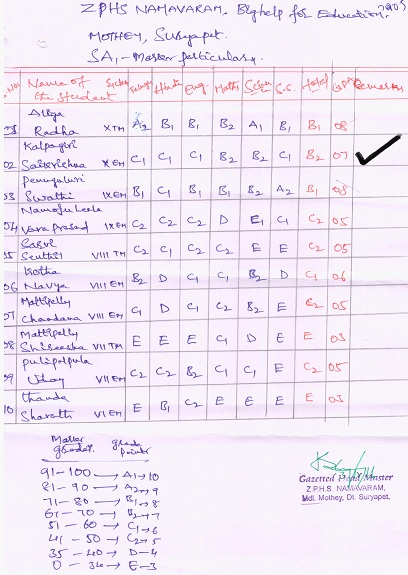 ZPHS NAMAVARAM, Big help for Education,
MOTHEY, Suryapet.
SA1, - Master particulars.
Name of the Student Telugu Hindi Eng Maths Scien S.S. Total GPA Remarks
01 Alliga Radha X TM A2 B1 B1 B2 A1 B1 B1 08
02 Kalpagiri Saikrishna X EM C1 C1 C1 B2 B2 C1 B2 07
03 Penuguluri Swathi IX EM B1 C1 B1 B1 B2 A2 B1 08
04 Leela Vara Prasad IX EM C2 C2 C2 D E1 C1 C2 05
05 VIII TM C2 C1 C2 C2 E E C2 05
06 Kotha Navya VIII EM B2 D C1 C1 B2 D C1 06
07 Mattipelly Chandana VIII EM C1 D C1 C2 B2 E C2 05
08 Mattipelly Shireesha VII TM E E E C1 D E E 03
09 Uday VII EM C2 C2 B2 C1 C1 E C2 05
10 Thanda Sharath VI EM E B1 C2 E E E E 03
Master grades. grade points
91-100 → A1→10
81-90 → A2→9
71-80 → B1→8
61-70 → B2→7
51-60 → C1→6
41-50 → C2→5
35-40 → D-4
0-34 → E-3
Gazetted Head Master
Z.P.H.S. NAMAVARAM,
Mdl. Mothey, Dt. Suryapet.